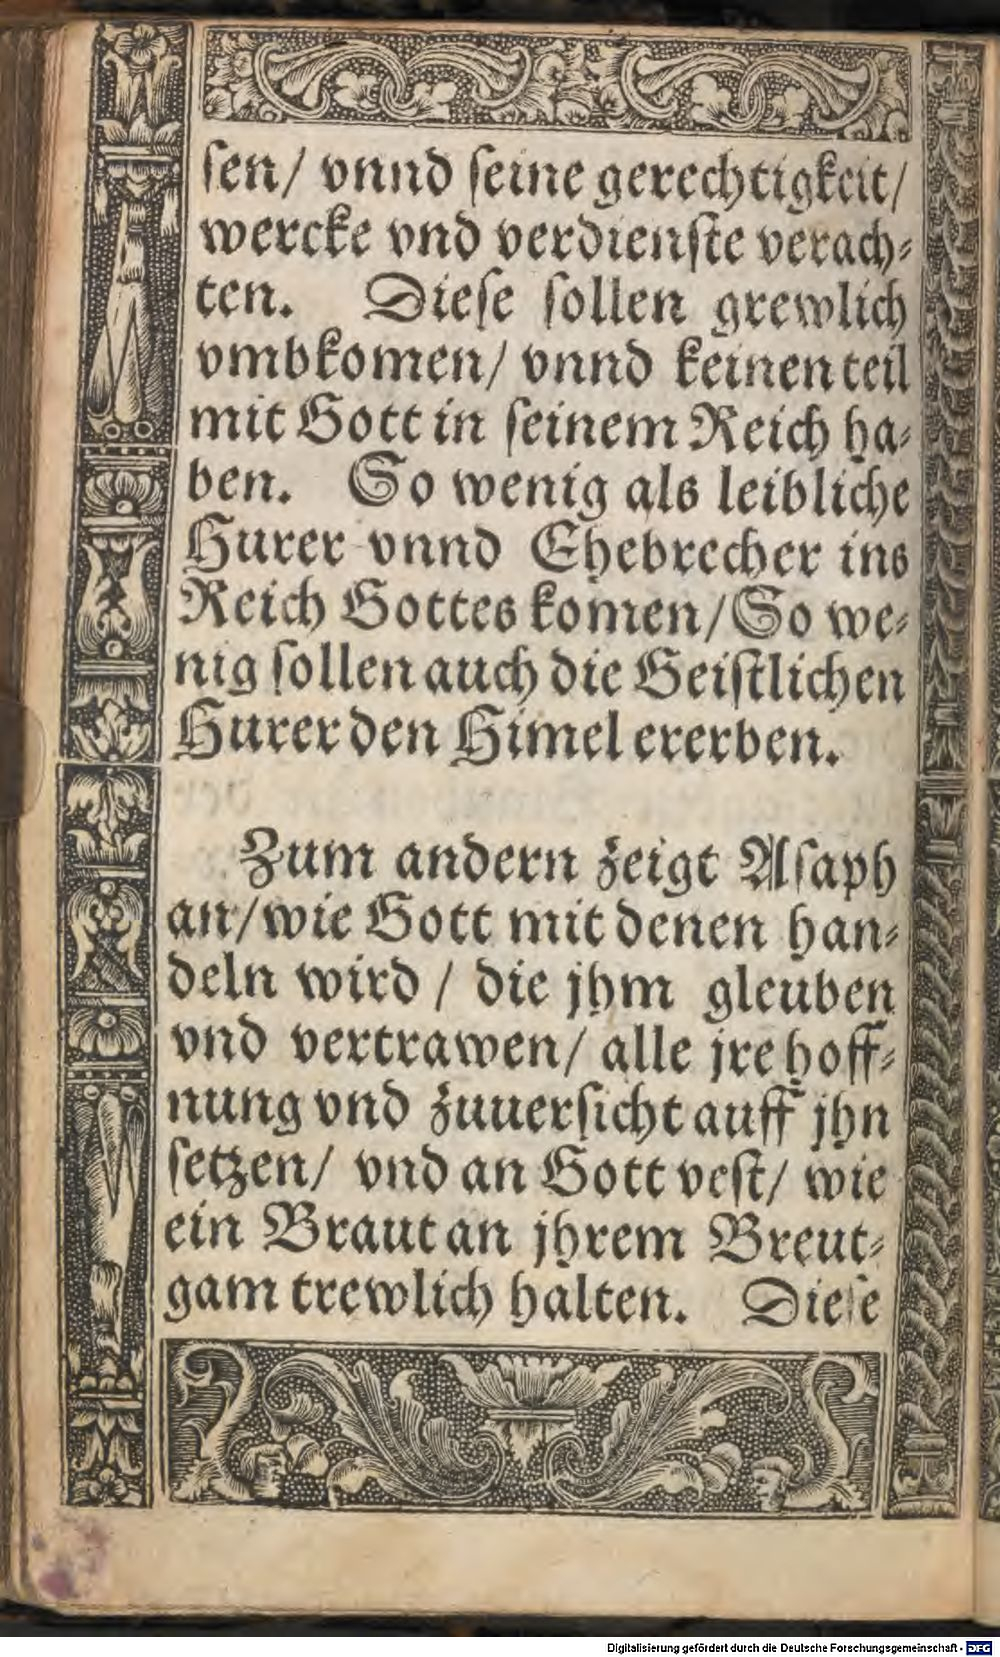 ſen/ vnnd ſeine gerechtigkeit/
wercke vnd verdienſte verach⸗
ten. Dieſe ſollen grewlich
vmbkomen/ vnnd keinen teil
mit Gott in ſeinem Reich ha⸗
ben. So wenig als leibliche
Hurer vnnd Ehebrecher ins
Reich Gottes komen/ So we⸗
nig ſollen auch die Geiſtlichen
Hurer den Himel ererben.
Zum andern zeigt Aſaph
an/ wie Gott mit denen han⸗
deln wird / die jhm gleuben
vnd vertrawen/ alle jre hoff⸗
nung vnd zuuerſicht auff jhn
ſetzen/ vnd an Gott veſt/ wie
ein Braut an jhrem Breut⸗
gam trewlich halten. Dieſe
Digitalisierung gefördert durch die Deutsche Forschungsgemeinschaft - DFG